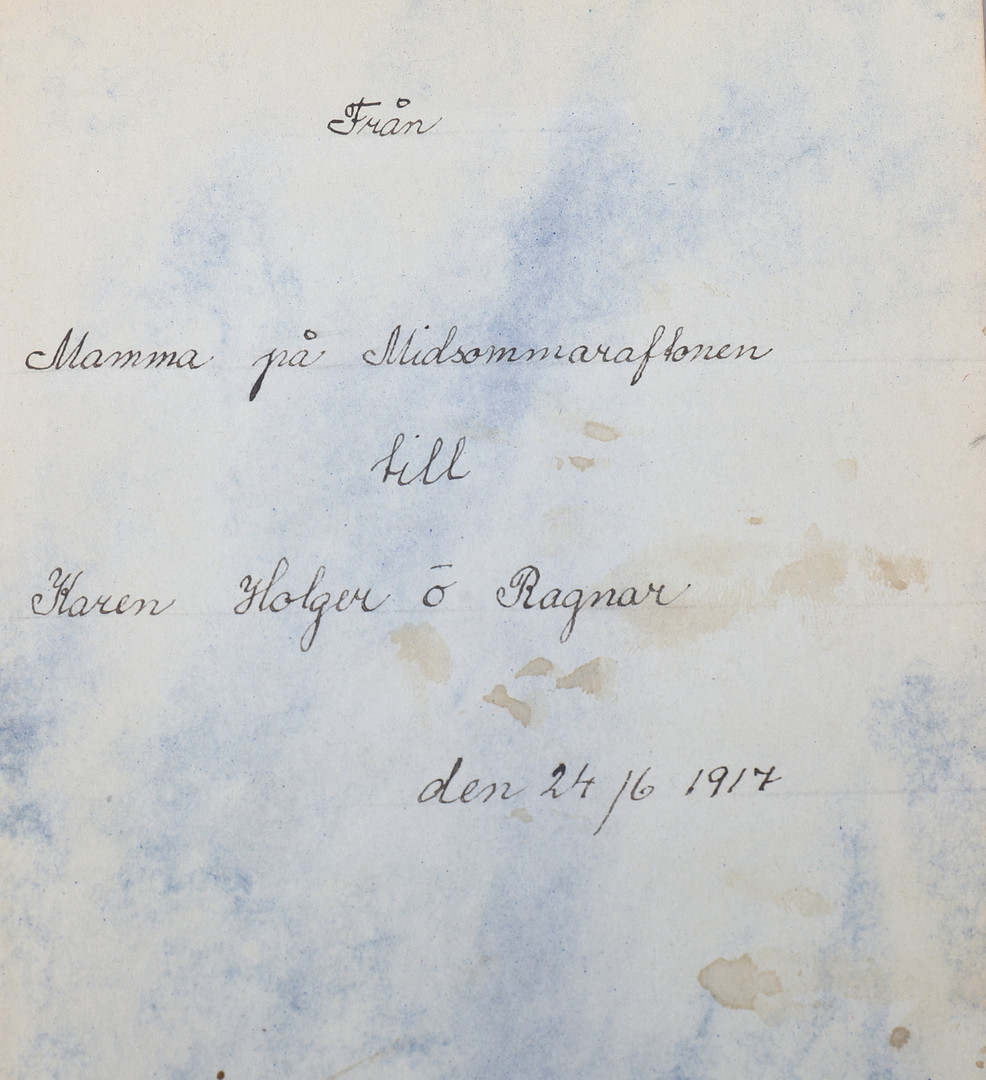 Från
Mamma på Midsommaraftonen
till
Karen Holger ō Ragnar
den 24/6 1917